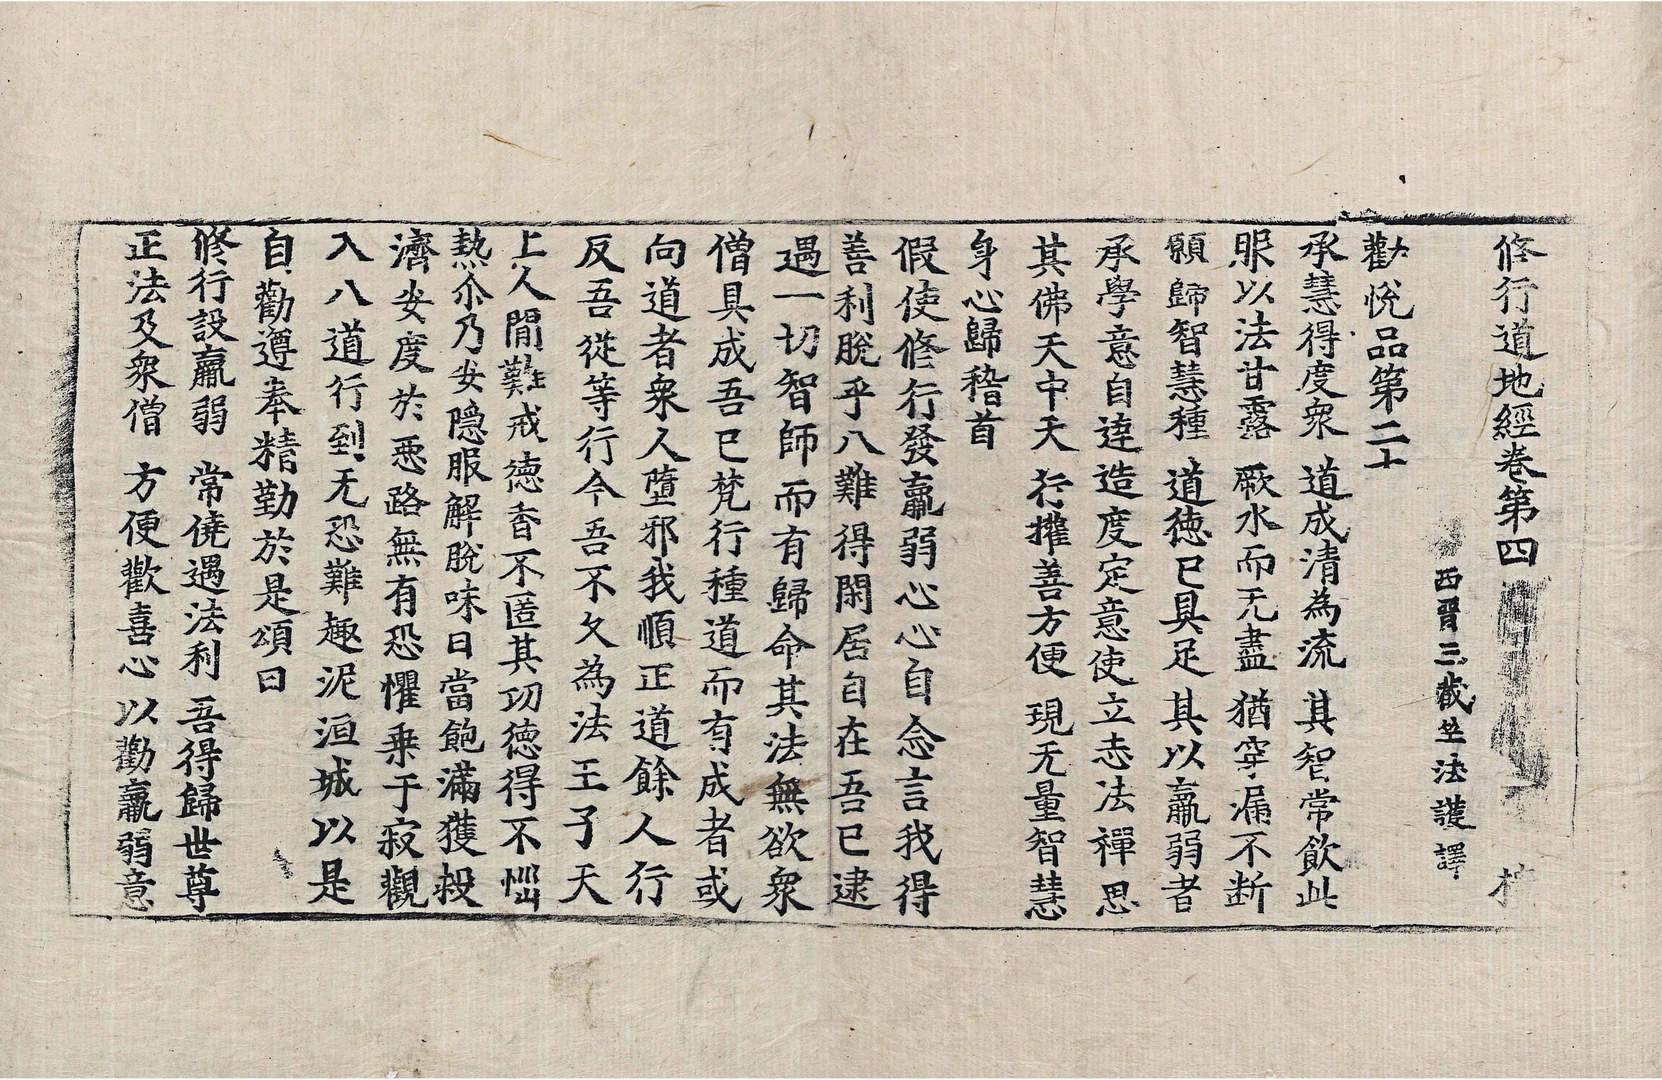 修行道地經卷第四
西晉三藏竺法護譯
勸悅品第二十
承慧得度衆 道成清為流 其智常飲此
服以法甘露 厥水而无盡 猶穿漏不断
願歸智慧種 道徳巳具足 其以羸弱者
承學意自達 造度定意使 立志法禪思
其佛天中天 行攉善方便 現无量智慧
身心歸稽首
假使修行發羸弱心心自念言我得
善利脫乎八難得閑居自在吾巳逮
遇一切智師而有歸命其法無欲衆
僧具成吾巳梵行種道而有成者或
向道者衆人墮邪我順正道餘人行
反吾從等行今吾不久為法王子天
上人閒難戒徳香不匿其功徳得不惱
熱尒乃安隠服解脫味日當飽滿獲
濟安度於悪路無有恐懼乗于寂觀
入八道行到无恐難趣泥洹城以是
自勸遵奉精勤於是頌曰
修行設羸弱 常僥遇法利 吾得歸世尊
正法及衆僧 方便歡喜心 以勸羸弱意